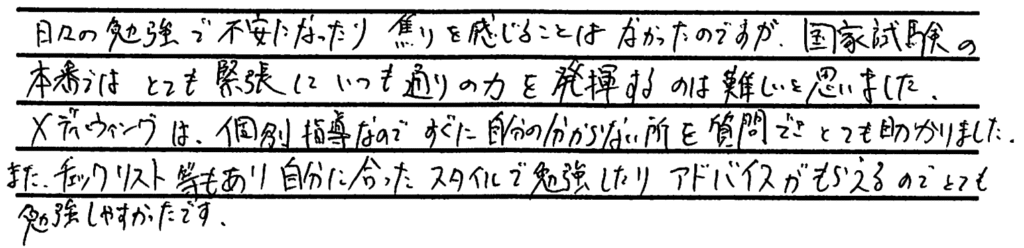 日々の勉強で不安になったり焦りを感じることはなかったのですが、国家試験の
本番ではとても緊張していつも通りの力を発揮するのは難しいと思いました。
メディウィングは、個別指導なのですぐに自分の分からない所を質問できとても助かりました。
また、チェックリスト等もあり自分に合ったスタイルで勉強したりアドバイスがもらえるのでとても
勉強しやすかったです。